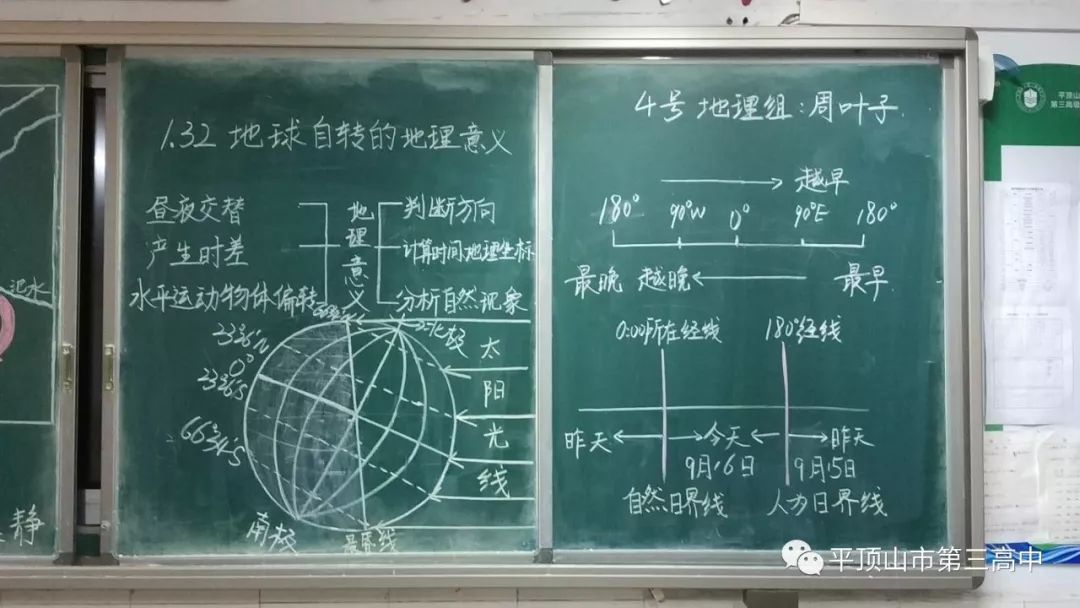 汜水
静
1.32 地球自转的地理意义
昼夜交替
产生时差
水平运动物体偏转
地理意义
判断方向
计算时间地理坐标
分析自然现象
23°26′N
0°
23°26′S
66°34′S
南极
北极
晨昏线
太阳光线
4号 地理组：周叶子
越早
180° 90°W 0° 90°E 180°
最晚 越晚 最早
0:00所在经线 180°经线
昨天 今天 昨天
9月16日 9月15日
自然日界线 人为日界线
平顶山
第三高级
平顶山市第三高中